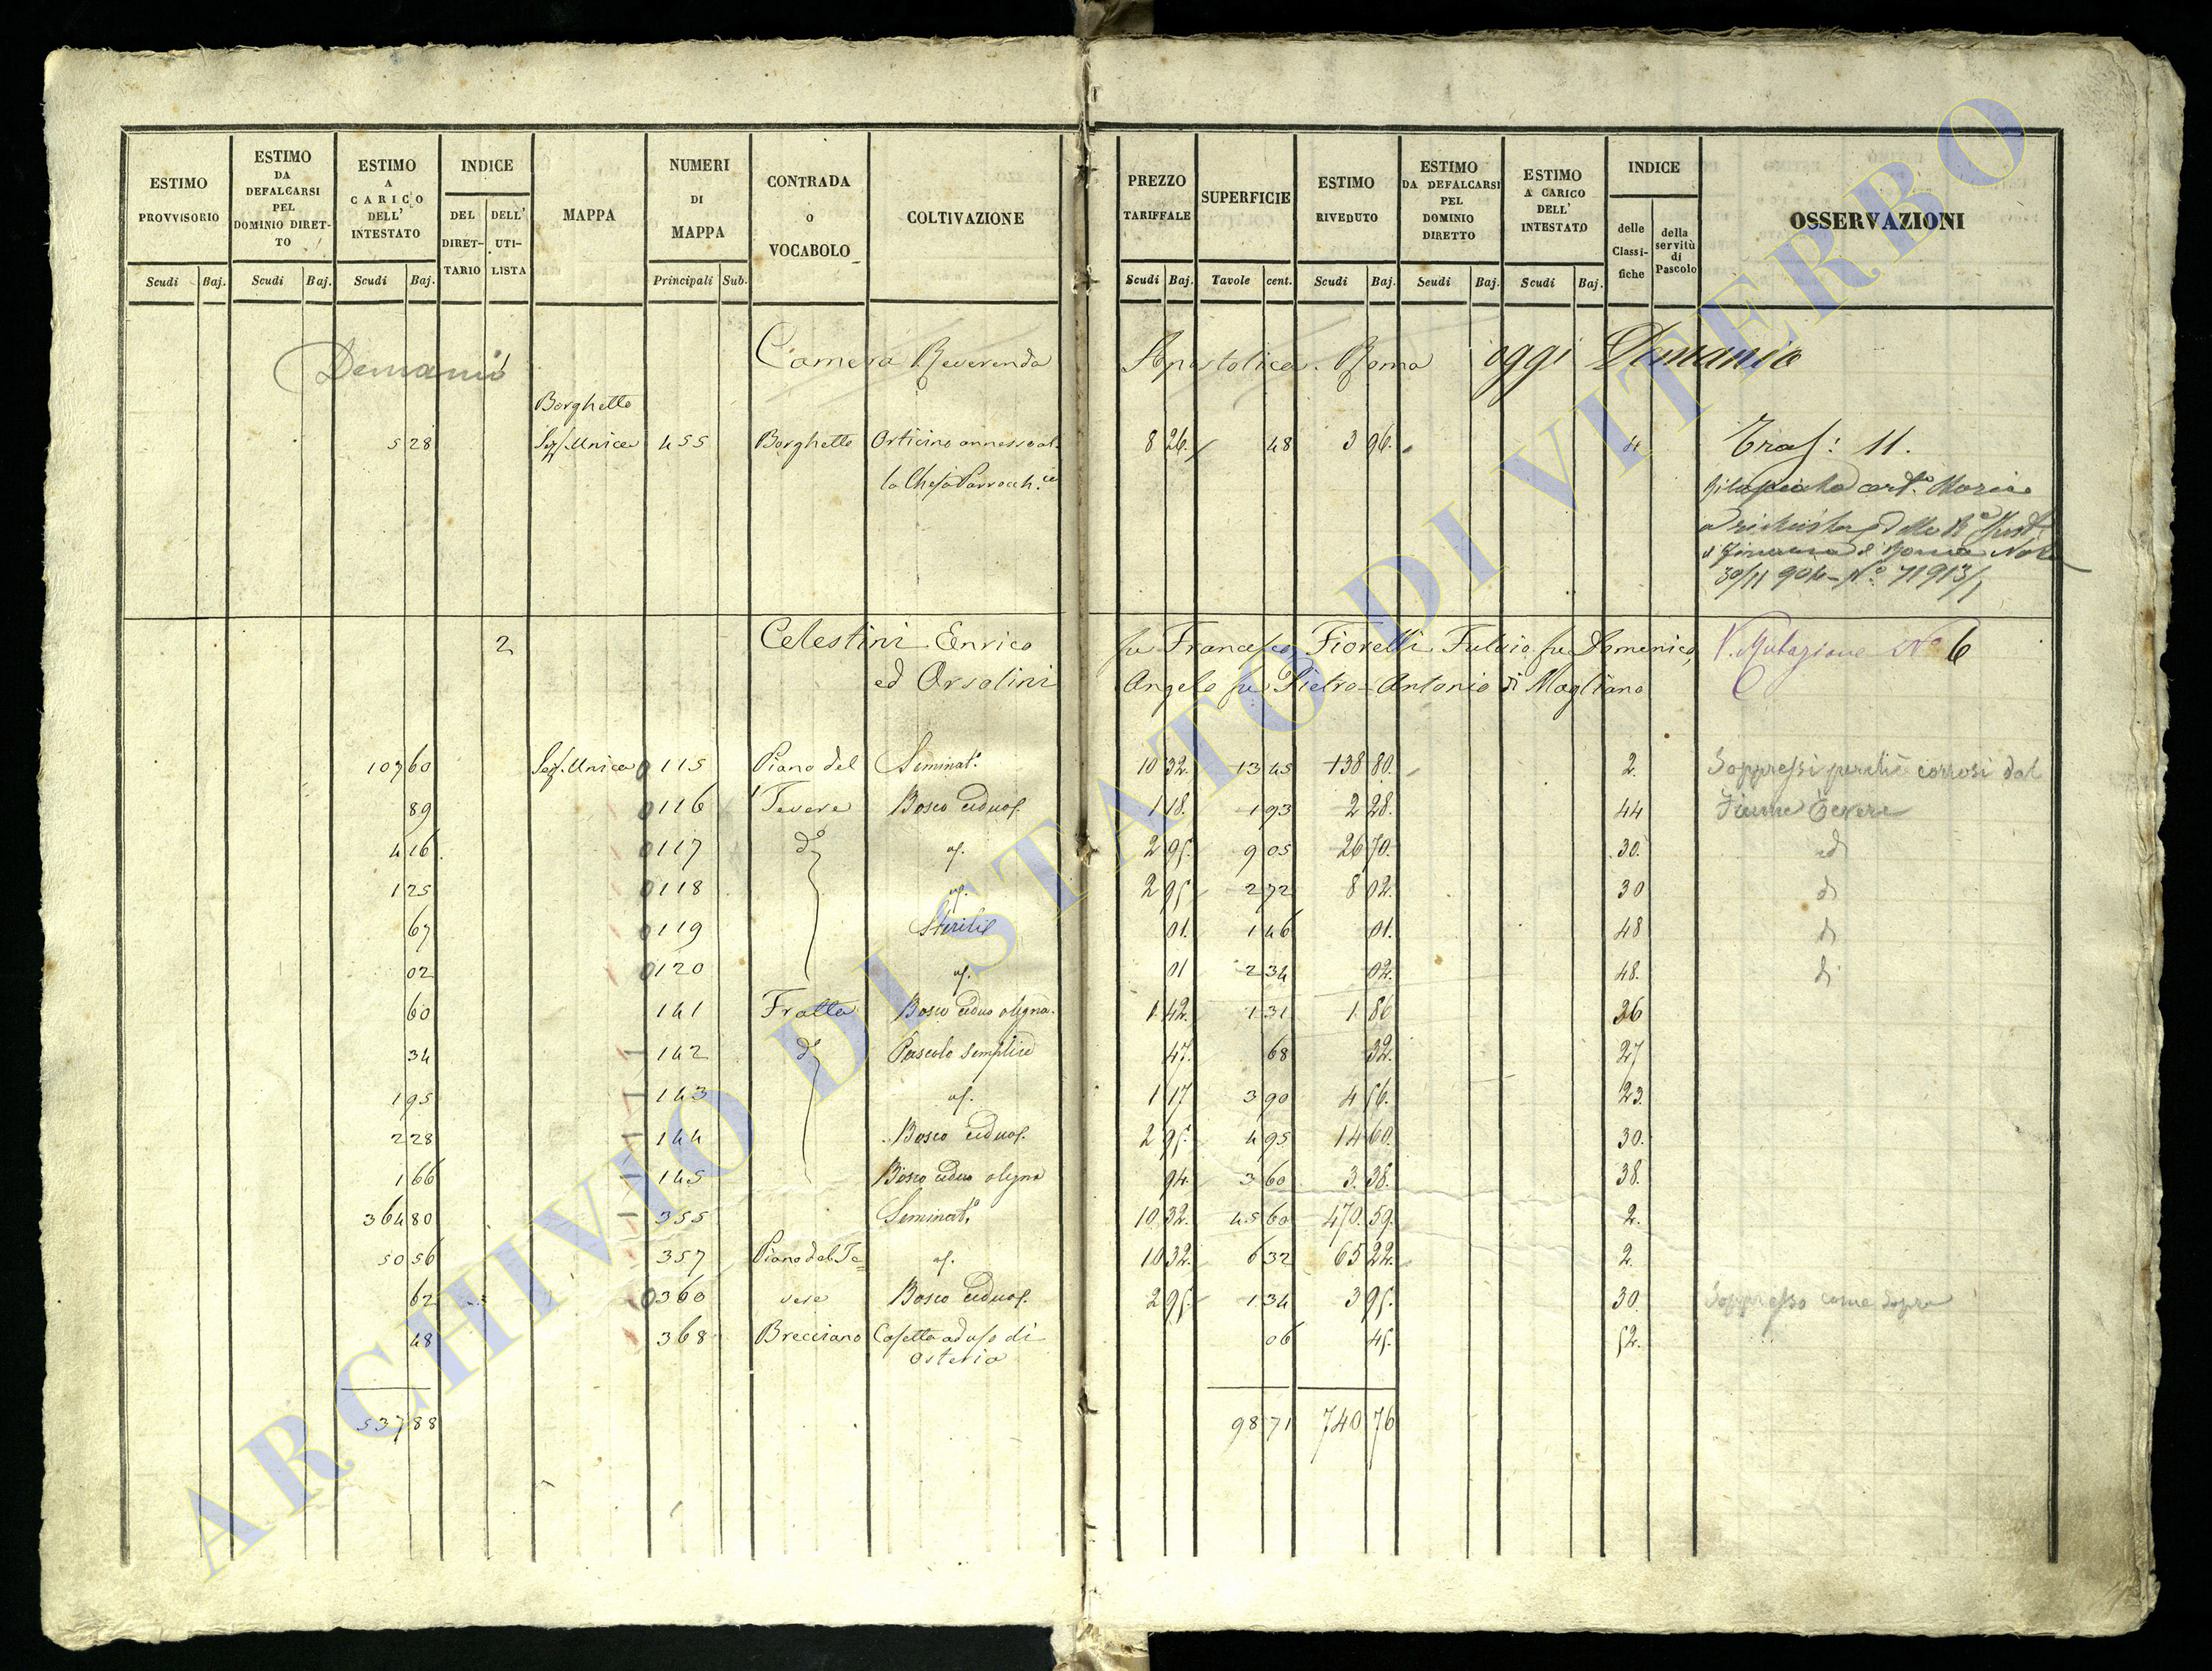 ESTIMO PROVVISORIO Scudi Baj.
ESTIMO DA DEFALCARSI PEL DOMINIO DIRETTO Scudi Baj.
ESTIMO A CARICO DELL' INTESTATO Scudi Baj.
INDICE DEL DIRETTARIO DELL' UTILISTA
MAPPA
NUMERI DI MAPPA Principali Sub.
CONTRADA o VOCABOLO
COLTIVAZIONE
PREZZO TARIFFALE Scudi Baj.
SUPERFICIE Tavole cent.
ESTIMO RIVEDUTO Scudi Baj.
ESTIMO DA DEFALCARSI PEL DOMINIO DIRETTO Scudi Baj.
ESTIMO A CARICO DELL' INTESTATO Scudi Baj.
INDICE delle Classifiche della servitù di Pascolo
OSSERVAZIONI
Demanio Camera Reverenda Apostolica. Roma oggi Demanio
Borghetto
5 28 Sez. Unica 455 Borghetto Orticino annesso al- 8 26. 48 3 96. 4 Tras: 11.
la Chiesa Parroch.
30/11 904 - N° 71913/1
2 Celestini Enrico fu Francesco, Fiorelli Fulvio fu Domenico, V. Mutazione N° 6
ed Orsolini Angelo fu Pietro-Antonio di Magliano
107 60 Sez. Unica 0115 Piano del Seminat.° 10 32. 13 45 138 80. 2. Soppressi perchè corrosi dal
89 0116 Tevere Bosco ceduo f. 1 18. 1 93 2 28. 44 Fiume Tevere
4 16 0117 d° 2 95. 9 05 26 70. 30. id
1 25 0118 2 95 2 72 8 02. 30
67 0119 Sterile 01. 1 46 01. 48
02 0120 01 2 34 02. 48.
60 141 Fratta Bosco ceduo 1 42. 1 31 1 86 36
34 142 d° Pascolo semplice 47. 68 32. 27
1 95 143 1 17 3 90 4 56. 23.
2 28 144 Bosco ceduo f. 2 95. 4 95 14 60. 30.
1 66 145 Bosco ceduo 94. 3 60 3. 38. 38.
364 80 355 Seminat.° 10 32. 45 60 470. 59. 2.
50 56 357 Piano del Te= 10 32. 6 32 65 22. 2.
62 0360 vere Bosco ceduo f. 2 95. 1 34 3 95. 30. Soppresso come sopra
48 368 Brecciano Casetta ad uso di 06 45. 52.
osteria
537 88 98 71 740 76
ARCHIVIO DI STATO DI VITERBO